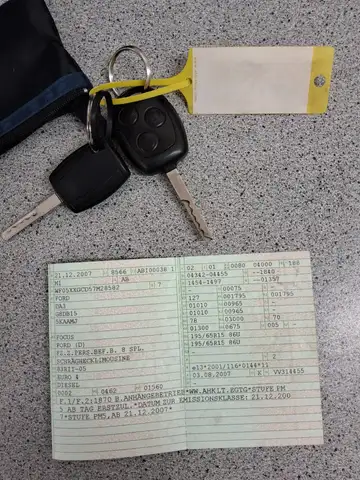 21.12.2007 8566 ABI00036 1
M1 AB
WF05XXGCD57M28582 7
FORD
DA3
GRDB15
5KAAMJ
FOCUS
FORD (D)
FZ.Z.PERS.BEF.B. 8 SPL.
SCHRÄGHECKLIMOUSINE
83RII-05
EURO 4
DIESEL
0002 0462 01560
02 01 0080 04000 188
04342-04455 --1840
1454-1497 --01357
00675
127 001795 001795
01010 00965
01010 00965
78 01300 70
01300 0675 005
195/65R15 86U
195/65R15 86U
2
e13*2001/116*0144*11
03.08.2007 K VV314455
F.1/F.2:1870 B.ANHÄNGEBETRIEB*WW.AHKLT.EGTG*STUFE PM
5 AB TAG ERSTZUL.*DATUM ZUR EMISSIONSKLASSE: 21.12.200
7*STUFE PM5,AB 21.12.2007*